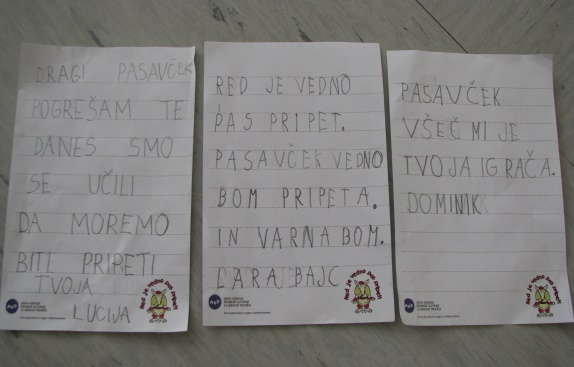 DRAGI PASAVČEK
POGREŠAM TE
DANES SMO
SE UČILI
DA MOREMO
BITI PRIPETI
TVOJA
LUCIJA
Red je vedno pas pripet
AVP
RED JE VEDNO
PAS PRIPET.
PASAVČEK VEDNO
BOM PRIPETA.
IN VARNA BOM.
LARA BAJC
Red je vedno pas pripet
AVP
PASAVČEK
VŠEČ MI JE
TVOJA IGRAČA.
DOMINIK
Red je vedno pas pripet
AVP